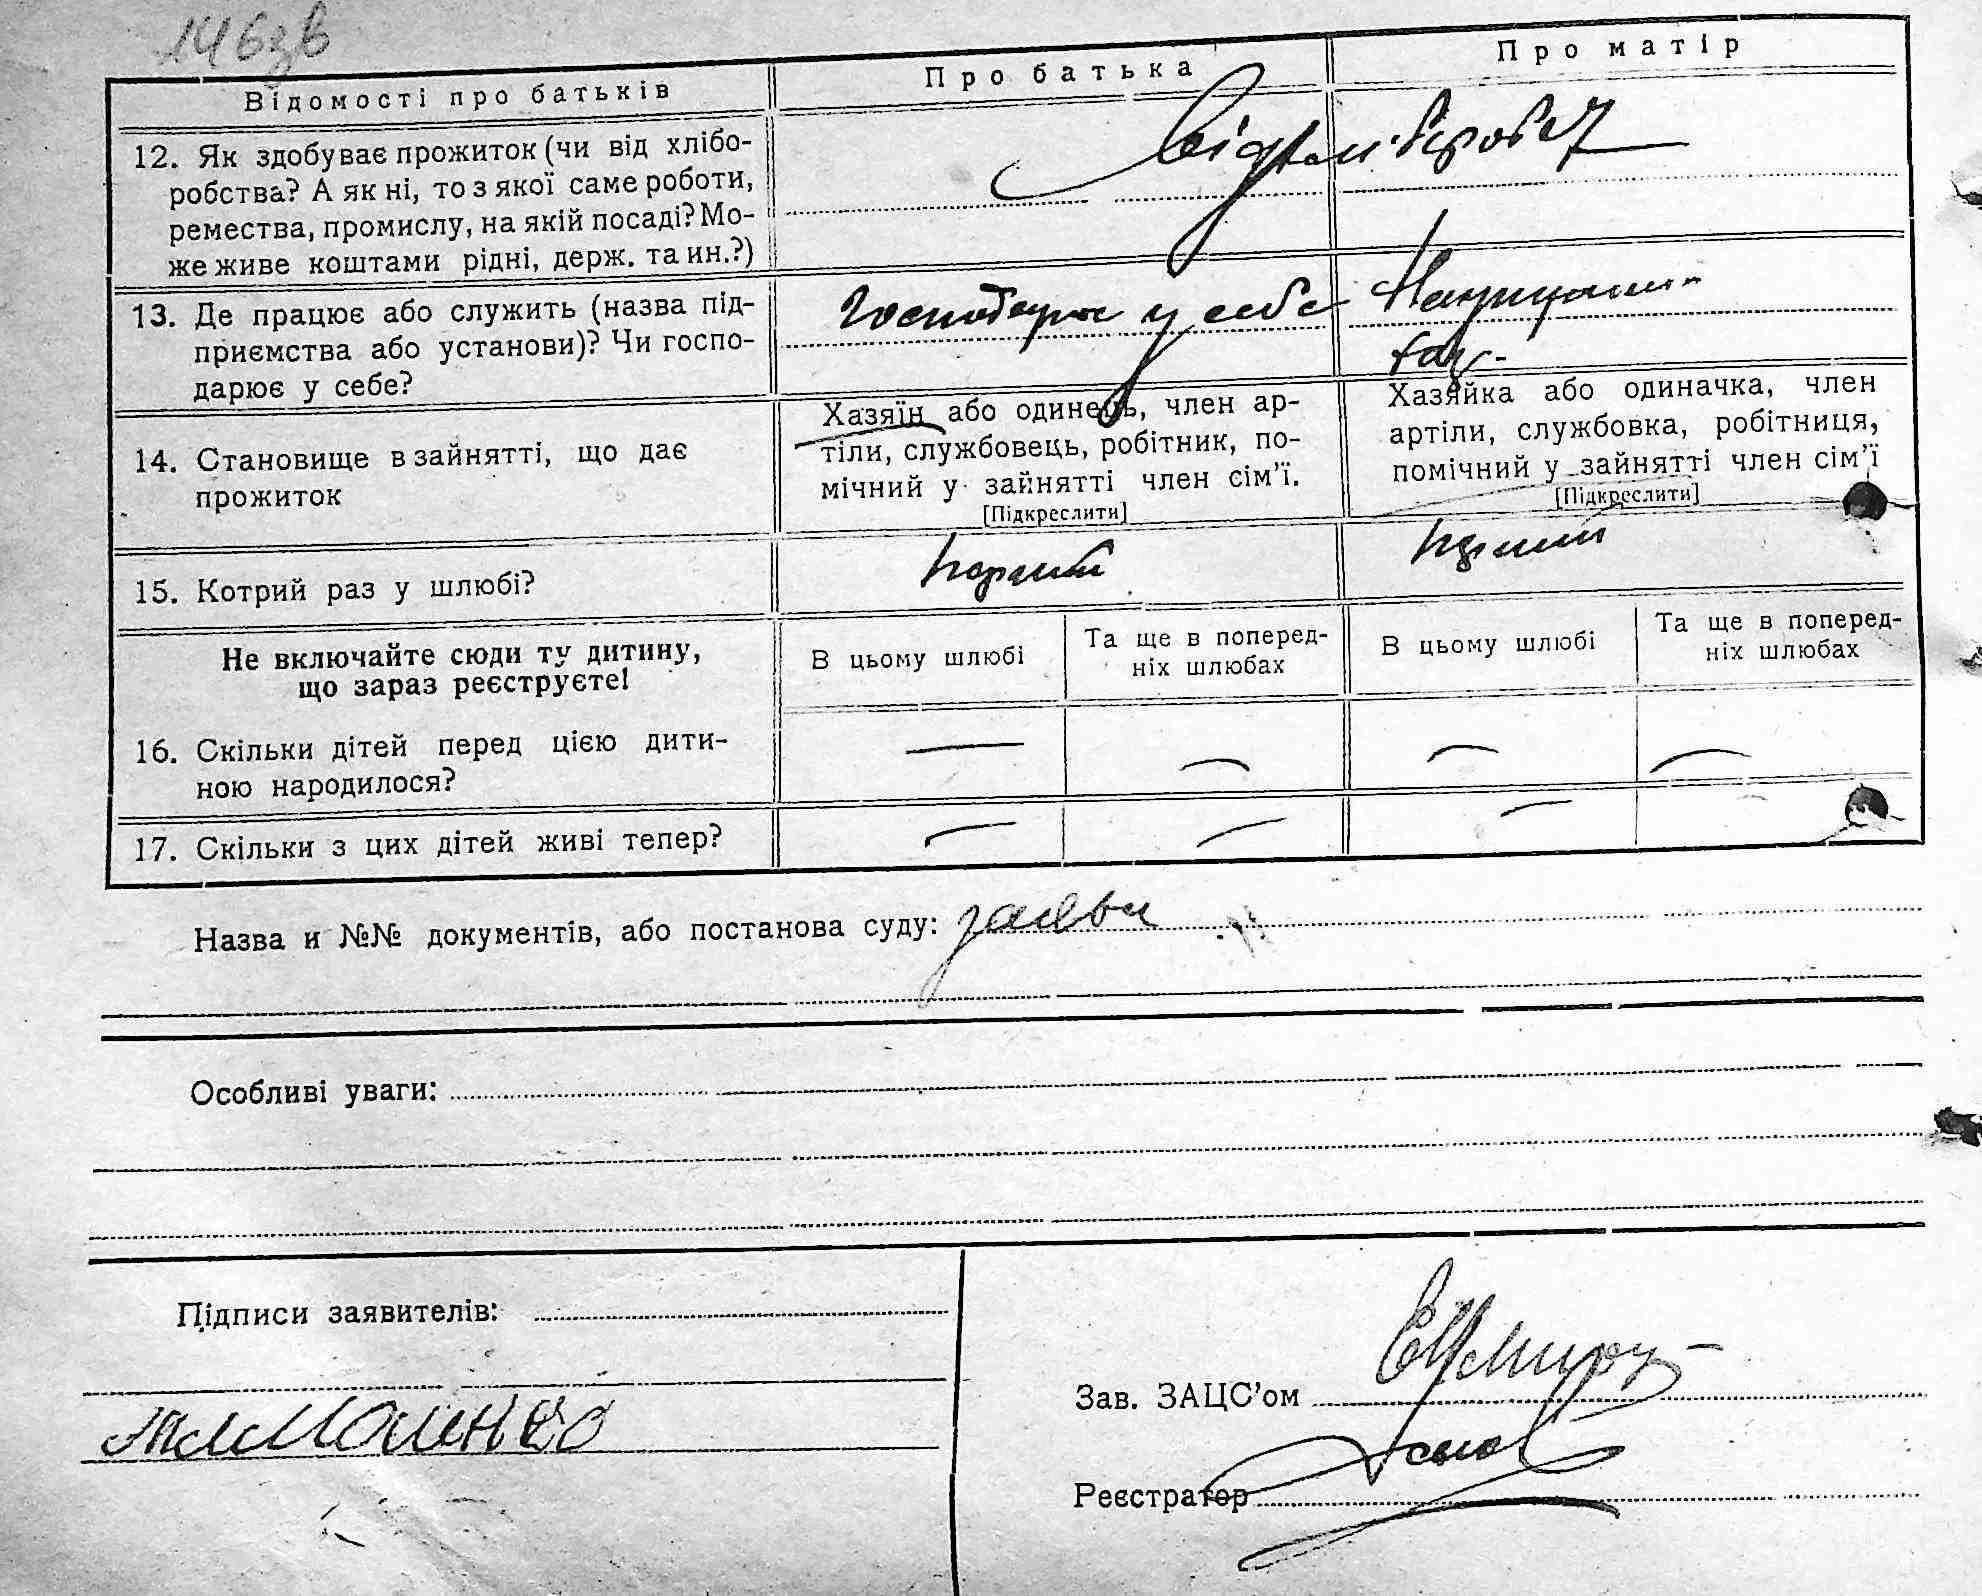 146зв
Відомості про батьків
Про батька
Про матір
12. Як здобуває прожиток (чи від хлібо-
робства? А як ні, то з якої саме роботи,
ремества, промислу, на якій посаді? Мо-
же живе коштами рідні, держ. та ин.?)
від хліборобст
13. Де працює або служить (назва під-
приємства або установи)? Чи госпо-
дарює у себе?
Господарює у себе
14. Становище в зайнятті, що дає
прожиток
Хазяїн або одинець, член ар-
тіли, службовець, робітник, по-
мічний у зайнятті член сім'ї.
[Підкреслити]
Хазяйка або одиначка, член
артіли, службовка, робітниця,
помічний у зайнятті член сім'ї
[Підкреслити]
15. Котрий раз у шлюбі?
перший
перший
Не включайте сюди ту дитину,
що зараз реєструєте!
В цьому шлюбі
Та ще в поперед-
ніх шлюбах
В цьому шлюбі
Та ще в поперед-
ніх шлюбах
16. Скільки дітей перед цією дити-
ною народилося?
— — — —
17. Скільки з цих дітей живі тепер?
— — —
Назва и №№ документів, або постанова суду: заяви
Особливі уваги:
Підписи заявителів:
Зав. ЗАЦС'ом
Реєстратор